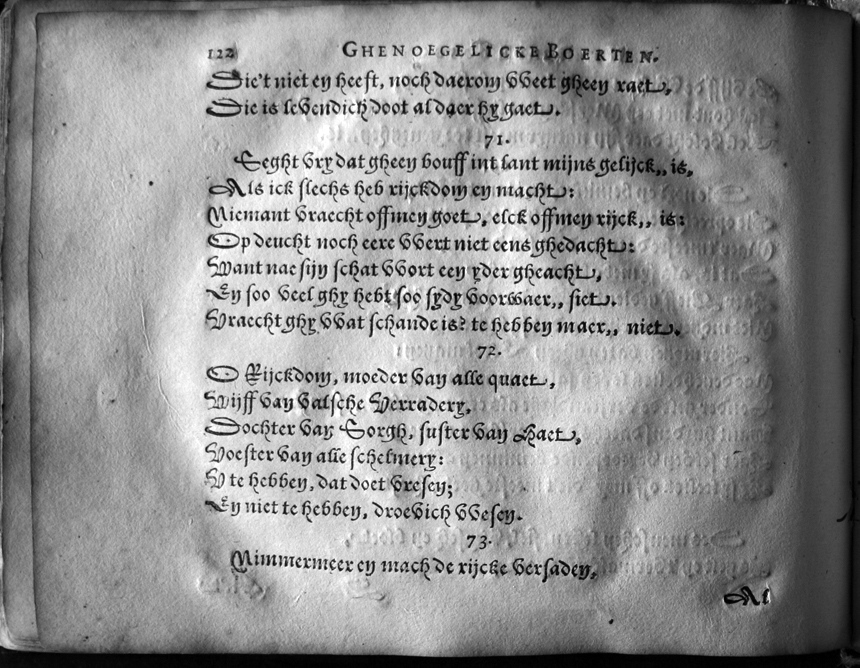 122 GHENOEGELICKE BOERTEN.
Die't niet en heeft, noch daerom vveet gheen raet,
Die is levendich doot al daer hy gaet.
71.
Seght vry dat gheen bouff int lant mijns gelijck,, is,
Als ick slechs heb rijckdom en macht:
Niemant vraecht off men goet, elck off men rijck,, is:
Op deucht noch eere vvert niet eens ghedacht:
Want nae sijn schat vvort een yder gheacht,
En soo veel ghy hebt soo sydy voorwaer,, siet.
Vraecht ghy vvat schande is? te hebben maer,, niet.
72.
O Rijckdom, moeder van alle quaet,
Wijff van valsche Verradery,
Dochter van Sorgh, suster van Haet,
Voester van alle schelmery:
V te hebben, dat doet vresen;
En niet te hebben, droevich vvesen.
73.
Nimmermeer en mach de rijcke versaden,
Al